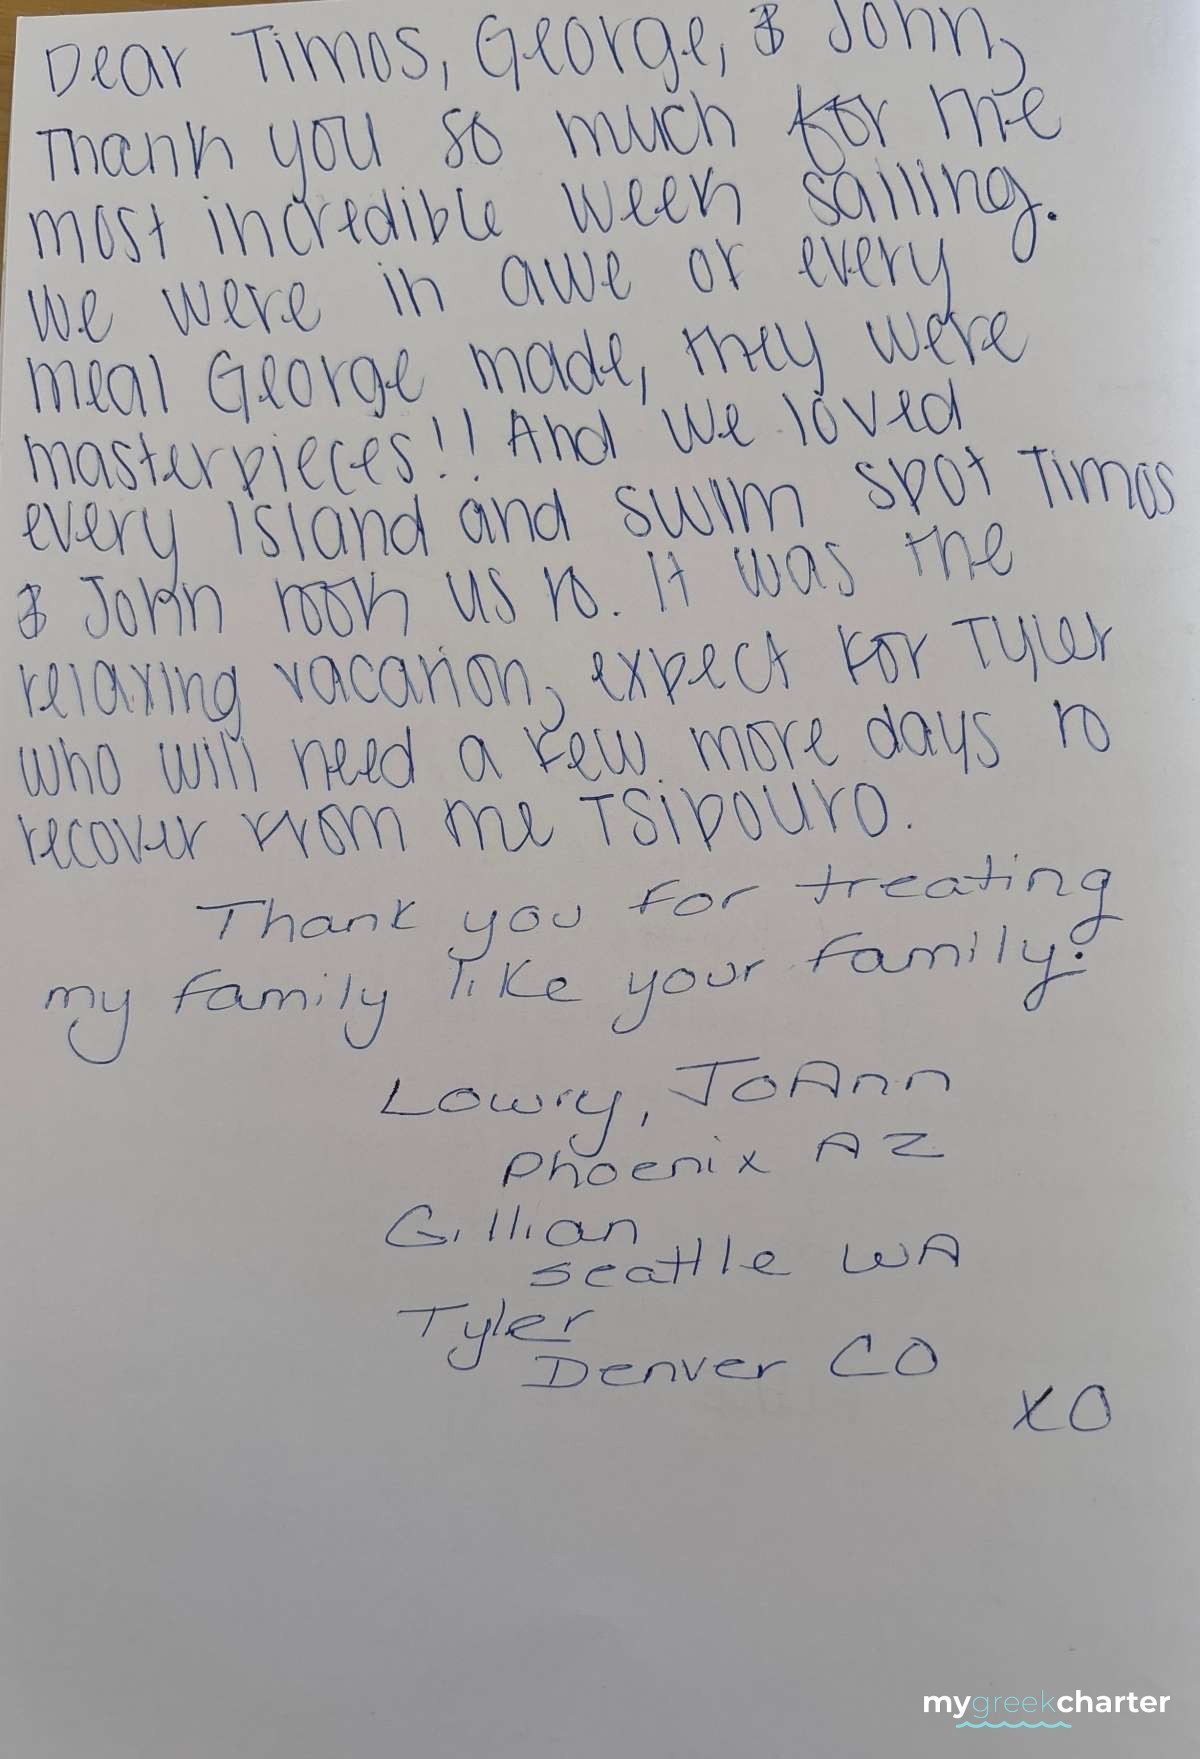 Dear Timos, George, & John,
Thank you so much for the
most incredible week sailing.
We were in awe of every
meal George made, they were
masterpieces!! And we loved
every island and swim spot Timos
& John took us to. It was the
relaxing vacation, expect for Tyler
who will need a few more days to
recover from the Tsipouro.
Thank you for treating
my family like your family.
Lowry, JoAnn
Phoenix AZ
Gillian
Seattle WA
Tyler
Denver CO
XO
mygreekcharter